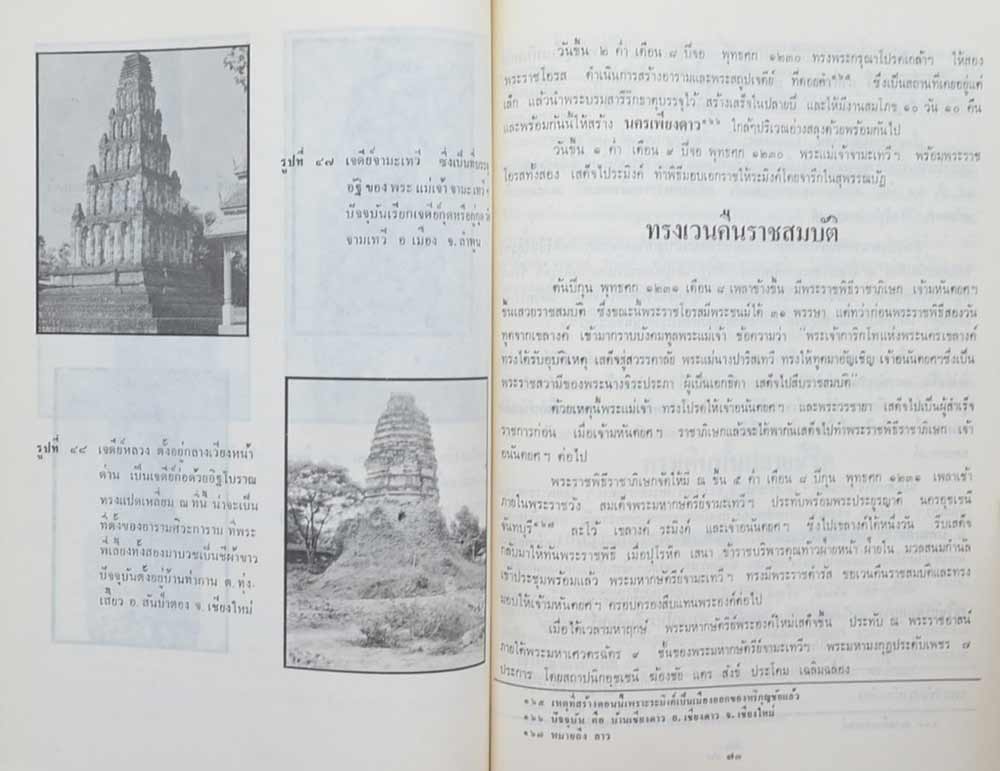 รูปที่ ๔๗ เจดีย์จามะเทวี ซึ่งเป็นที่บรรจุ
อัฐิของพระแม่เจ้าจามะเทวีฯ
ปัจจุบันเรียกเจดีย์กุดหรือกู่กุด
จามเทวี อ.เมือง จ.ลำพูน
รูปที่ ๔๘ เจดีย์หลวง ตั้งอยู่กลางเวียงหน้า
ด่าน เป็นเจดีย์ก่อด้วยอิฐโบราณ
ทรงแปดเหลี่ยม ณ ที่นี้ น่าจะเป็น
ที่ตั้งของอารามศิวะการาม ที่พระ
พี่เลี้ยงทั้งสองมาบวชเป็นชีผ้าขาว
ปัจจุบันตั้งอยู่บ้านท่ากาน ต.ทุ่ง-
เสี้ยว อ.สันป่าตอง จ.เชียงใหม่
วันขึ้น ๒ ค่ำ เดือน ๘ ปีจอ พุทธศก ๑๒๓๐ ทรงพระกรุณาโปรดเกล้าฯ ให้สอง
พระราชโอรส ดำเนินการสร้างอารามและพระสถูปเจดีย์ ที่ดอยคำ๑๖๕ ซึ่งเป็นสถานที่เคยอยู่แต่
เล็ก แล้วนำพระบรมสารีริกธาตุบรรจุไว้ สร้างเสร็จในปลายปี และให้มีงานสมโภช ๑๐ วัน ๑๐ คืน
และพร้อมกันนี้ให้สร้าง นครเพียงดาว๑๖๖ ใกล้ๆบริเวณอ่างสลุงด้วยพร้อมกันไป
วันขึ้น ๑ ค่ำ เดือน ๙ ปีจอ พุทธศก ๑๒๓๐ พระแม่เจ้าจามะเทวีฯ พร้อมพระราช
โอรสทั้งสอง เสด็จไประมิงค์ ทำพิธีมอบเอกราชให้ระมิงค์โดยจารึกในสุพรรณบัฏ
ทรงเวนคืนราชสมบัติ
ต้นปีกุน พุทธศก ๑๒๓๑ เดือน ๘ เพลาข้างขึ้น มีพระราชพิธีราชาภิเษก เจ้ามหันตยศฯ
ขึ้นเสวยราชสมบัติ ซึ่งขณะนี้พระราชโอรสมีพระชนม์ได้ ๓๑ พรรษา แต่ทว่าก่อนพระราชพิธีสองวัน
ทูตจากเขลางค์ เข้ามากราบบังคมทูลพระแม่เจ้า ข้อความว่า “พระเจ้าการิกโทแห่งพระนครเขลางค์
ทรงได้รับอุบัติเหตุ เสด็จสู่สวรรคาลัย พระแม่นางปาริสเทวี ทรงให้ทูตมาอัญเชิญ เจ้าอนันตยศฯซึ่งเป็น
พระราชสวามีของพระนางจิระประภา ผู้เป็นเอกธิดา เสด็จไปสืบราชสมบัติ”
ด้วยเหตุนี้พระแม่เจ้า ทรงโปรดให้เจ้าอนันตยศฯ และพระวรชายา เสด็จไปเป็นผู้สำเร็จ
ราชการก่อน เมื่อเจ้ามหันตยศฯ ราชาภิเษกแล้วจะได้พากันเสด็จไปทำพระราชพิธีราชาภิเษก เจ้า
อนันตยศฯ ต่อไป
พระราชพิธีราชาภิเษกจัดให้มี ณ ขึ้น ๕ ค่ำ เดือน ๘ ปีกุน พุทธศก ๑๒๓๑ เพลาเช้า
ภายในพระราชวัง สมเด็จพระมหากษัตรีย์จามะเทวีฯ ประทับพร้อมพระประยูรญาติ นครอุชเชนี
จันทบุรี๑๖๗ ละโว้ เขลางค์ ระมิงค์ และเจ้าอนันตยศฯ ซึ่งไปเขลางค์ได้หนึ่งวัน รีบเสด็จ
กลับมาให้ทันพระราชพิธี เมื่อปุโรหิต เสนา ข้าราชบริพารคุณท้าวฝ่ายหน้า ฝ่ายใน มวลสนมกำนัล
เข้าประชุมพร้อมแล้ว พระมหากษัตรีย์จามะเทวีฯ ทรงมีพระราชดำรัส ขอเวนคืนราชสมบัติและทรง
มอบให้เจ้ามหันตยศฯ ครอบครองสืบแทนพระองค์ต่อไป
เมื่อได้เวลามหาฤกษ์ พระมหากษัตริย์พระองค์ใหม่เสด็จขึ้น ประทับ ณ พระราชอาสน์
ภายใต้พระมหาเศวตรฉัตร ๙ ชั้นของพระมหากษัตรีย์จามะเทวีฯ พระมหามงกุฎประดับเพชร ๗
ประการ โดยสถาปนิกอุชเชนี ฆ้องชัย แตร สังข์ ประโคม เฉลิมฉลอง
๑๖๕ เหตุที่สร้างตอนนี้เพราะระมิงค์เป็นเมืองออกของหริภุญชัยแล้ว
๑๖๖ ปัจจุบัน คือ บ้านเชียงดาว อ.เชียงดาว จ.เชียงใหม่
๑๖๗ หมายถึง ลาว
๗๓